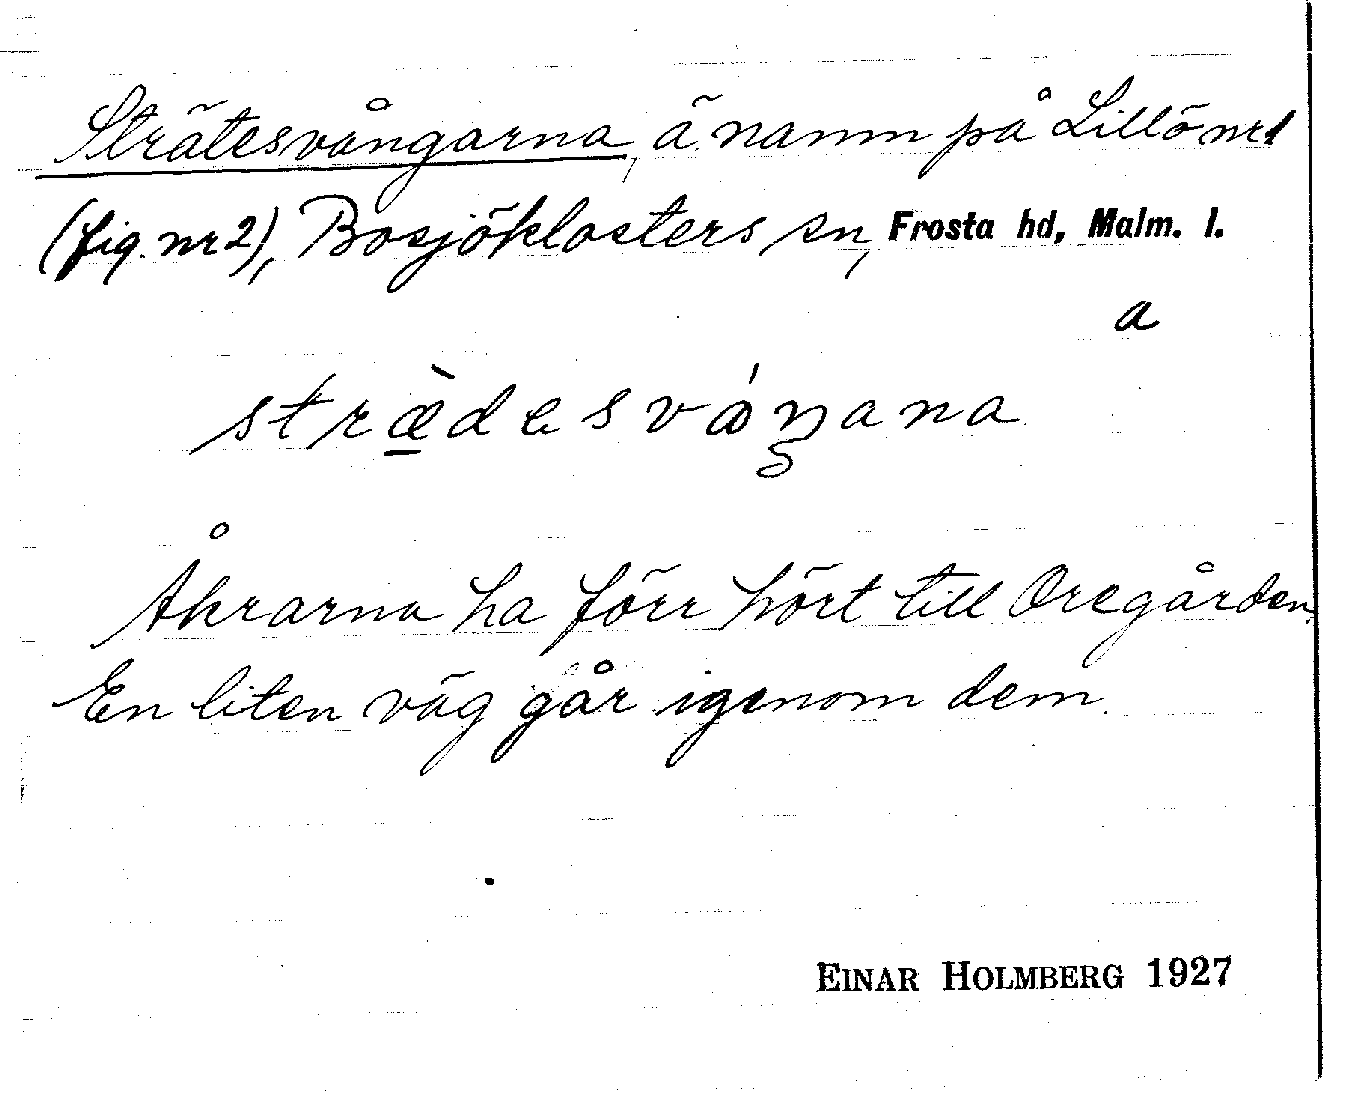 Strätesvångarna, ä. namn på Lillö nr 1
(fig. nr 2), Bosjöklosters sn, Frosta hd, Malm. l.
a
strædesvåŋana
Åkrarna ha förr hört till Oregården.
En liten väg går igenom dem.
EINAR HOLMBERG 1927